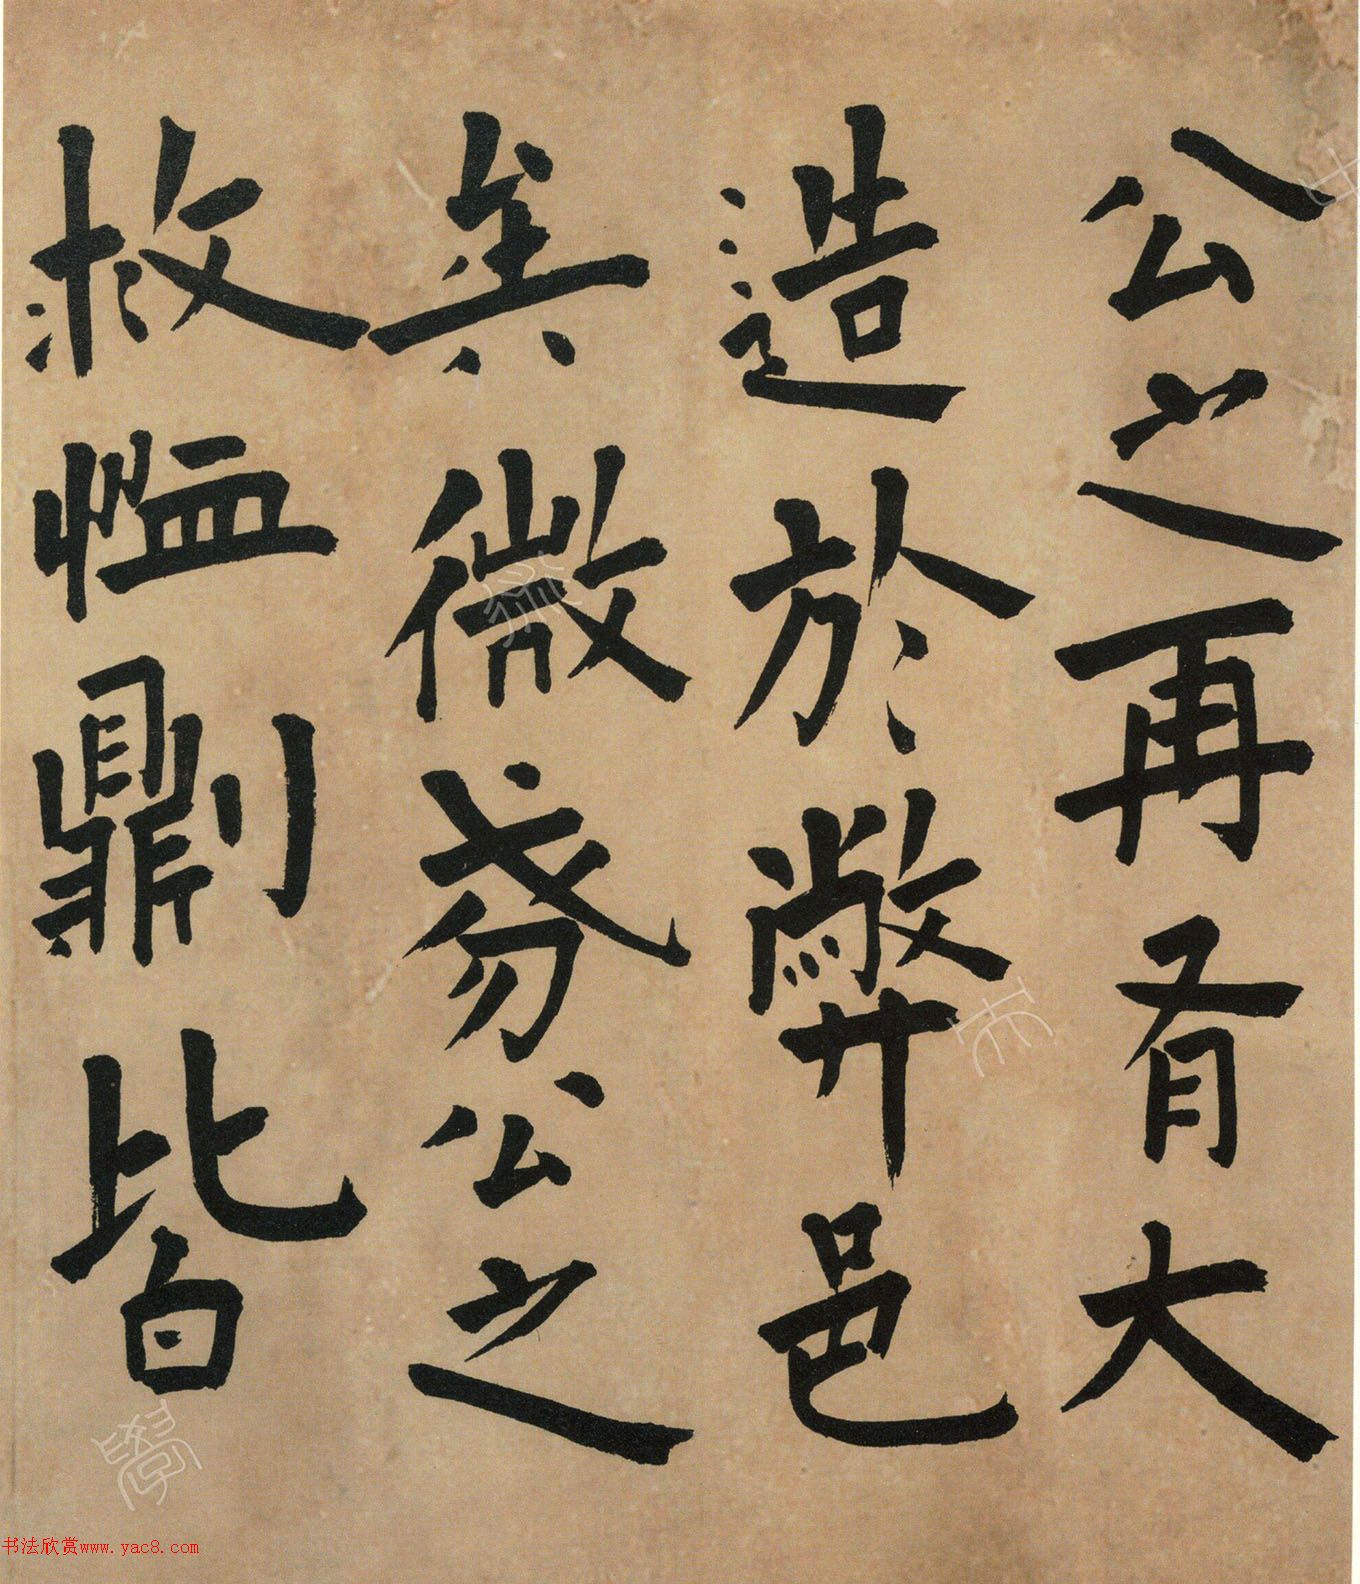 公之再有大
造於弊邑
矣微公之
救恤𠟭皆
书法欣赏www.yac8.com